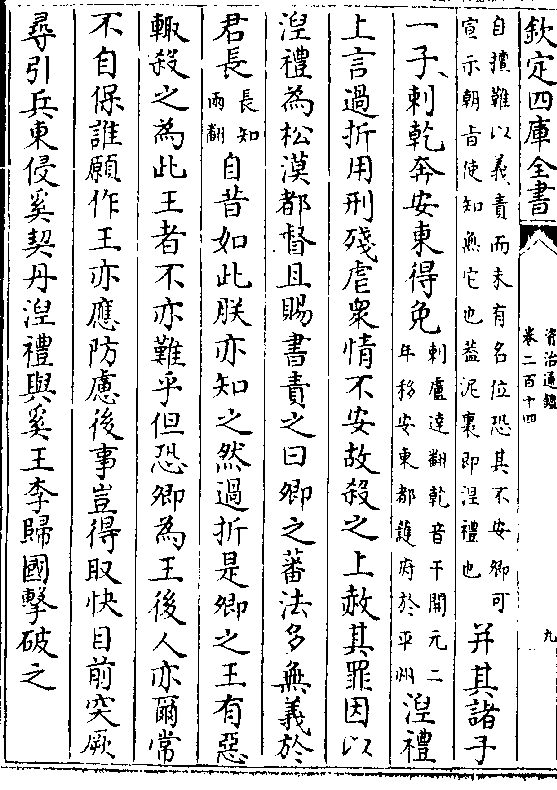 欽定四庫全書
資治通鑑
卷二百十四
九
自擅難以義責而未有名位恐其不安卿可
宣示朝旨使知無它也葢泥裏即湼禮也
并其諸子
一子刺乾奔安東得免
刺盧達翻乾音干開元二
年移安東都護府於平州
湼禮
上言過折用刑殘虐衆情不安故殺之上赦其罪因以
湼禮為松漠都督且賜書責之曰卿之蕃法多無義於
君長
長知
兩翻
自昔如此朕亦知之然過折是卿之王有惡
輙殺之為此王者不亦難乎但恐卿為王後人亦爾常
不自保誰願作王亦應防慮後事豈得取快目前突厥
尋引兵東侵奚契丹湼禮與奚王李歸國擊破之